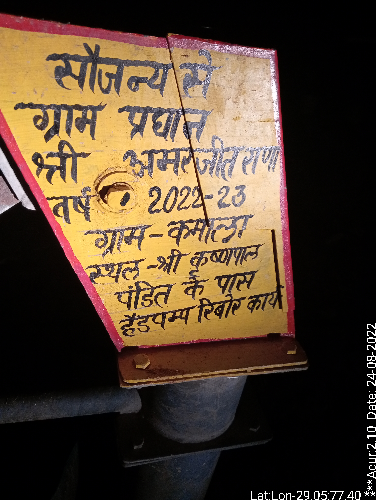 सौजन्य से
ग्राम प्रधान
श्री अमरजीत राणा
वर्ष 2022-23
ग्राम - कमाला
स्थल - श्री कृष्णपाल
पंडित के पास
हैंडपम्प रिबोर कार्य
Lat Lon-29.05,77.40
***Acur:2.10 Date: 24-08-2022